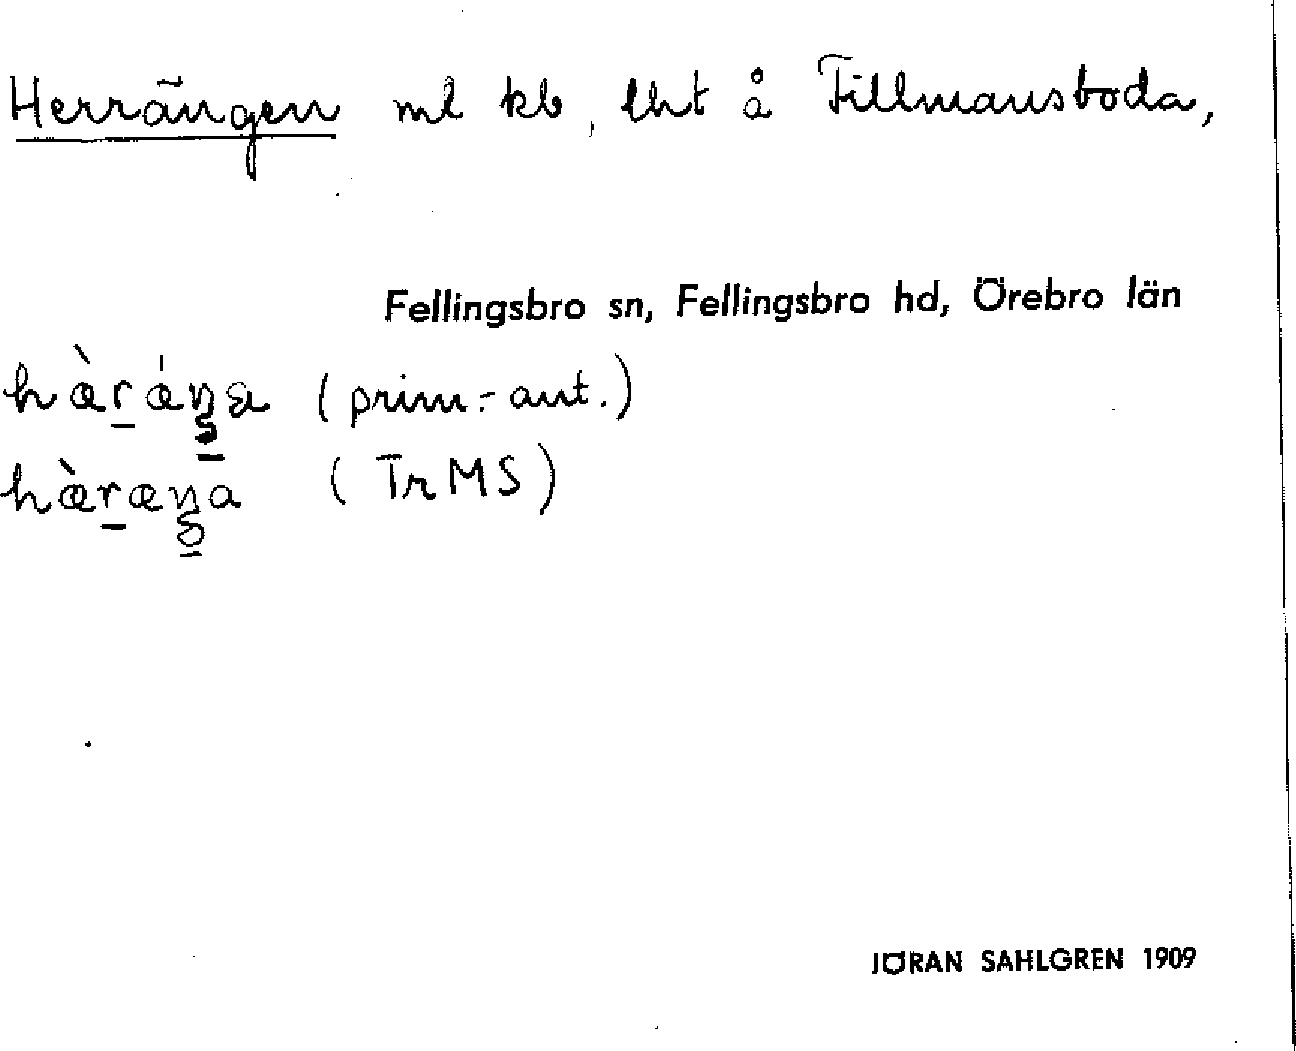 Herrängen ml kb, lht å Tillmansboda,
Fellingsbro sn, Fellingsbro hd, Örebro län
(prim.-ant.)
(TrMS)
JÖRAN SAHLGREN 1909